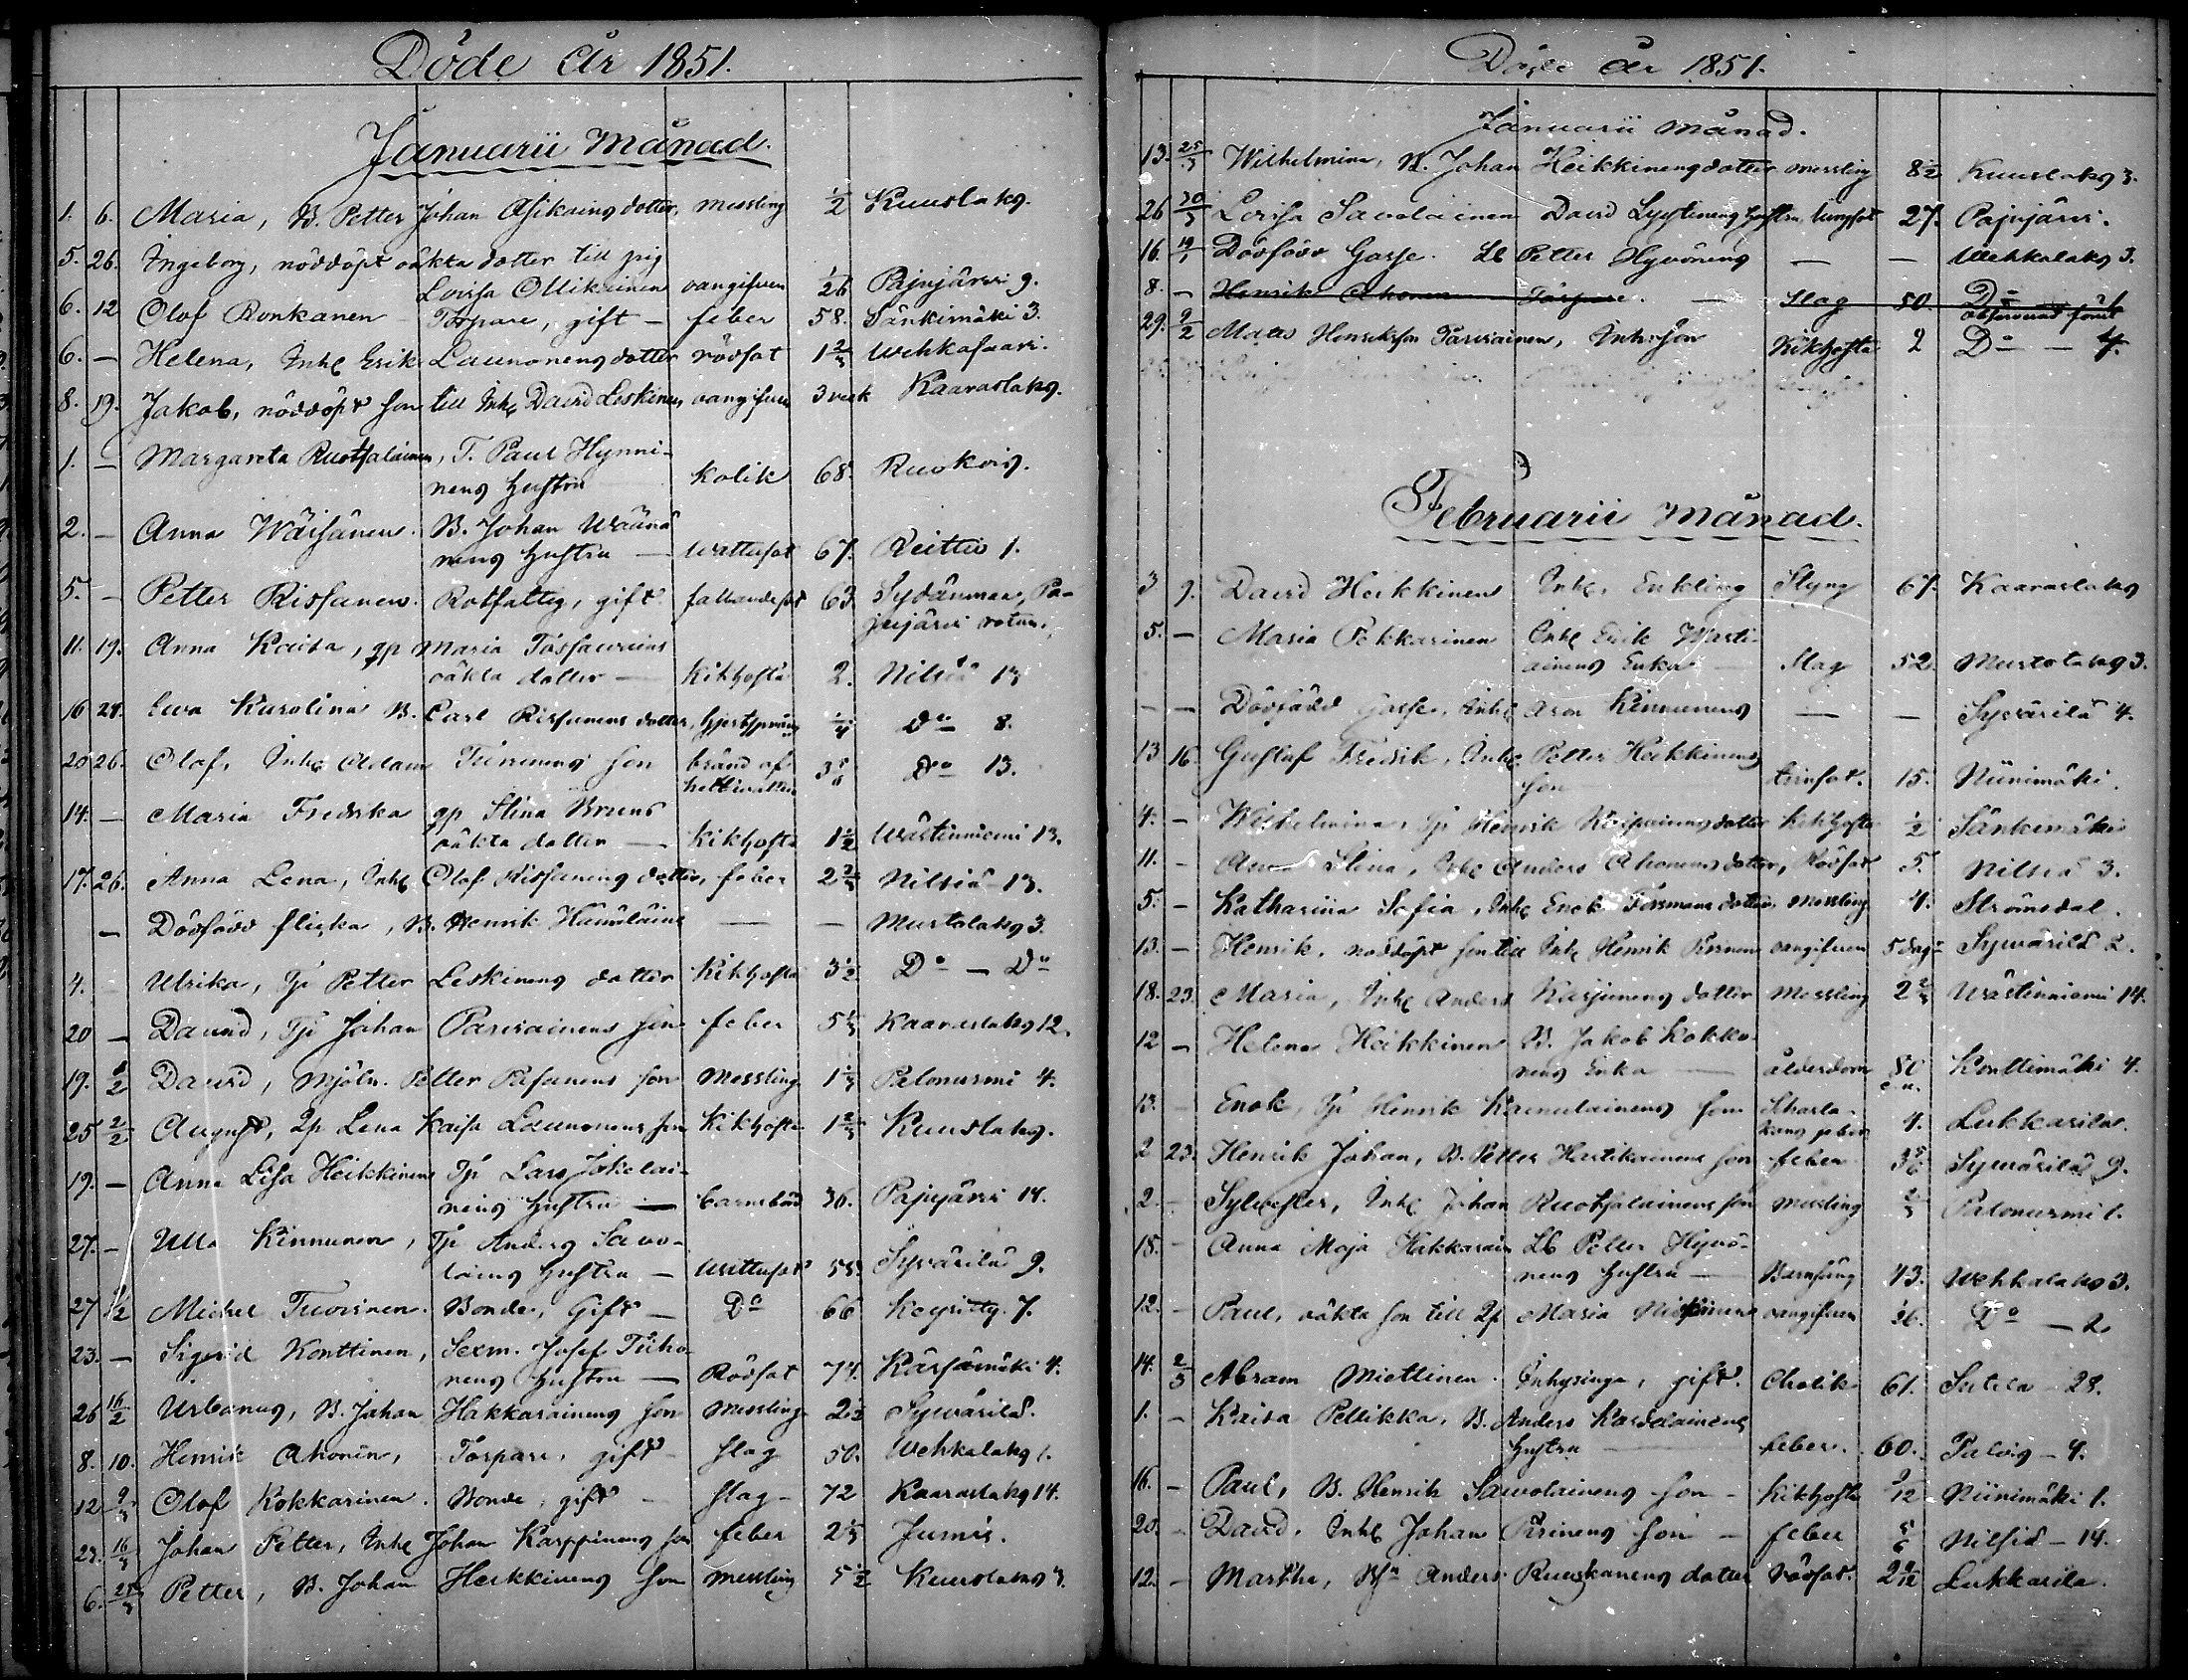 Döde År 1851.
Januarii Månad.
1. 6. Maria, B. Petter Johan Asikains dotter, messling 1/2 Kuuslaks.
5. 26. Ingeborg, nöddöpt oäkta dotter till pig
Lovisa Ollikainen oangifven 1/26 Pajujärvi 9.
6. 12 Olof Ronkanen Torpare, gift - feber 58. Sänkimäki 3.
6. - Helena, Inh. Erik Launonens dotter rödsot 1 2/3 Wehkasaari.
8. 19. Jakob, nöddöpt son till Inh. David Leskinen, oangifven 3 veck Kaaraslaks.
1. - Margareta Ruotsalainen, T. Paul Hynni-
nens hustru kolik 68. Ruokois.
2. - Anna Wäisänen. B. Johan Wäänä
nens hustru - Wattusot 67. Reittiö 1.
5. - Petter Rissanen. Rotfattig, gift. fallandesot 63. Sydänmaa, Pa-
jujärvi rotan.
11. 19. Anna Kaisa, qp Maria
oäkta dotter - Kikhosta 2. Nilsiä 13
16 28. Ewa Karolina B. Carl Rissanens dotter, 1/4 Do 8.
20 26. Olof, Inh. Adam son bränd af
hett watten 3 Do 13.
14. - Maria Fredrika qp Stina Bruns
oäkta dotter - Kikhosta 1 1/2 Wästinniemi 13.
17. 26. Anna Lena, Inh. Olof Rissanens dotter, feber 2 2/3 Nilsiä 13.
- Dödfödd flicka, B. Henrik Hämäläins - - Murtolaks 3.
4. - Ulrika, Tp Petter Leskinens dotter Kikhosta 3 1/2 Do - Do
20 - David, Tp Johan Parviainens son feber 5 1/3 Kaaraslaks 12.
19. 2/2 David, Mjöln. Petter Pasanens son Messling 1 1/3 Palonurmi 4.
25 2/2 August, Qp Lena Kaisa Launonens son Kikhosta 1 2/3 Kuuslaks.
19. - Anna Lisa Heikkinen Tp Lars Jokelai-
nens hustru - barnsbörd 36. Pajujärvi 14.
27. - Ulla Kinnunen, Tp Anders Savo-
lains hustru - Wattusot 58 Syvärilä 9.
27 1/2 Michel Tuovinen. Bonde, Gift - Do 66 7.
23. - Sigrid Konttinen, Sexm. Josef Tiiho
nens hustru - Rödsot 74. Kärsämäki 4.
26 16/2 Urbanus, B. Johan Hakkarainens son Messling 2 1/2 Syvärilä.
8. 10. Henrik Ahonen, Torpare, gift - slag 50. Wehkalaks 1.
12 9/3 Olof Kokkarinen. Bonde, gift - slag - 72 Kaaraslaks 14.
23. 16/3 Johan Petter, Inh. Johan Karppinens son feber 2 1/3 Jumis.
6. 28/3 Petter, B. Johan Heikkinens son messling 5 1/2 Kuuslaks 3.
Döde År 1851.
Januarii Månad.
13. 25/3 Wilhelmina, B. Johan Heikkinens dotter messling 8 1/2 Kuuslaks 3.
26 30/3 Lovisa Savolainen David hustru, lungsot 27. Pajujärvi.
16. 19/1 Dödfödd Gosse. Lb Petter Hyvönens - - Wehkalaks 3.
8. - Henrik Ahonen Torpare. - Slag 50. Do
observerad förut
29. 9/2 Mats Henriksson Parviainen, Inh. son Kikhosta 2 Do - 4.
Februarii Månad.
3 9. David Heikkinen Inh. Enkling Styng 67. Kaaraslaks
5. - Maria Pekkarinen Inh. Erik Marti-
ainens Enka - Slag 52. Murtolaks 3.
- - Dödfödd Gosse, Inh. Aron Kinnunens - - Syvärilä 4.
13 16. Gustaf Fredrik, Inh. Petter Heikkinens
son 15. Niinimäki.
4. - Wilhelmina, Tp Henrik dotter Kikhosta 1/2 Sänkimäki
11. - Stina, Inh. Anders Ahonens dotter, Rödsot 5. Nilsiä 3.
5. - Katharina Sofia, Inh. Enok Forsmans dotter, Messling 4. Strömsdal.
13. - Henrik, nöddöpt son till Inh. Henrik oangifven 5 dag. Syvärilä 2.
18. 23. Maria, Inh. Anders Karjunens dotter Messling 2 2/3 Wästinniemi 14.
12 - Helena Heikkinen B. Jakob Kokko
nens Enka - ålderdom 80 Konttimäki 4.
13. - Enok, Tp Henrik son Scharla-
kans feber 4. Lukkarila.
2 23. Henrik Johan, B. Petter Hartikainens son feber 3 5/6 Syvärilä 9.
2. - Sylvester, Inh. Johan Ruotsalainens son messling 2/3 Palonurmi 1.
15. - Anna Maja Hakkarain Lb Petter Hyvö-
nens hustru - Barnsäng 43. Wehkalaks 3.
12. - Paul, oäkta son till Qp Maria oangifven Do - 2
14. 2/3 Abram Miettinen. Inhysinge, gift. Cholik 61. Sutela 28.
1. - Kaisa Pellikka, B. Anders Kardelainens
hustru - feber. 60. Palois - 4.
16. - Paul, B. Henrik Sawolainens son - Kikhosta 9/12 Niinimäki 1.
20. - David. Inh. Johan Pirinens son - feber 5/6 Nilsiä - 14.
12. - Martha, Anders Ruuskanens dotter rödsot. 2 Lukkarila.